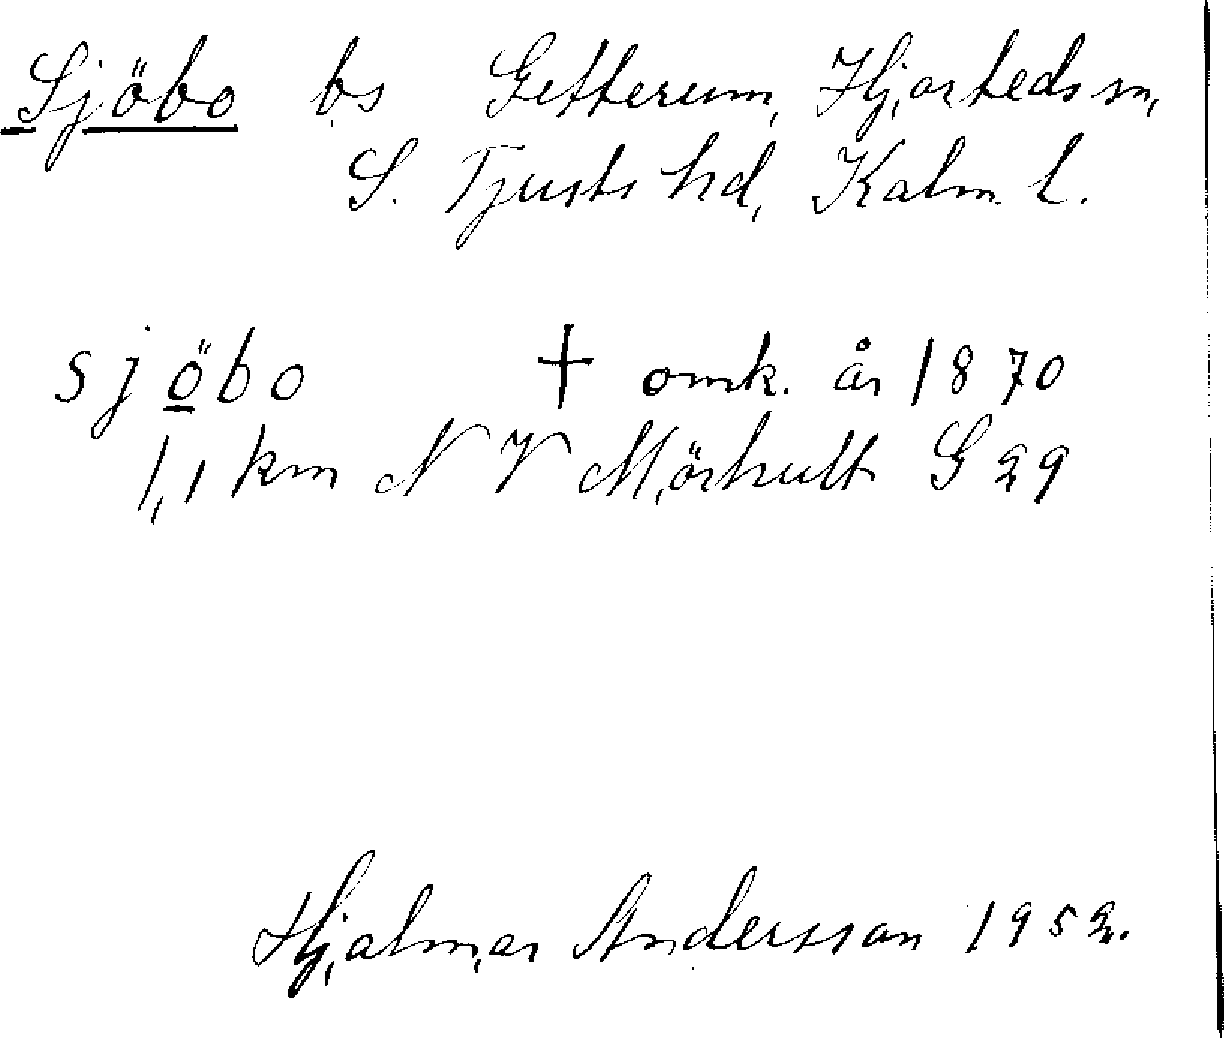 Sjöbo bs Getterum, Hjorteds sn,
S. Tjusts hd, Kalm. l.
sjöbo † omk. år 1870
1,1 km N V Mörhult G 29
Hjalmar Andersson 1952.